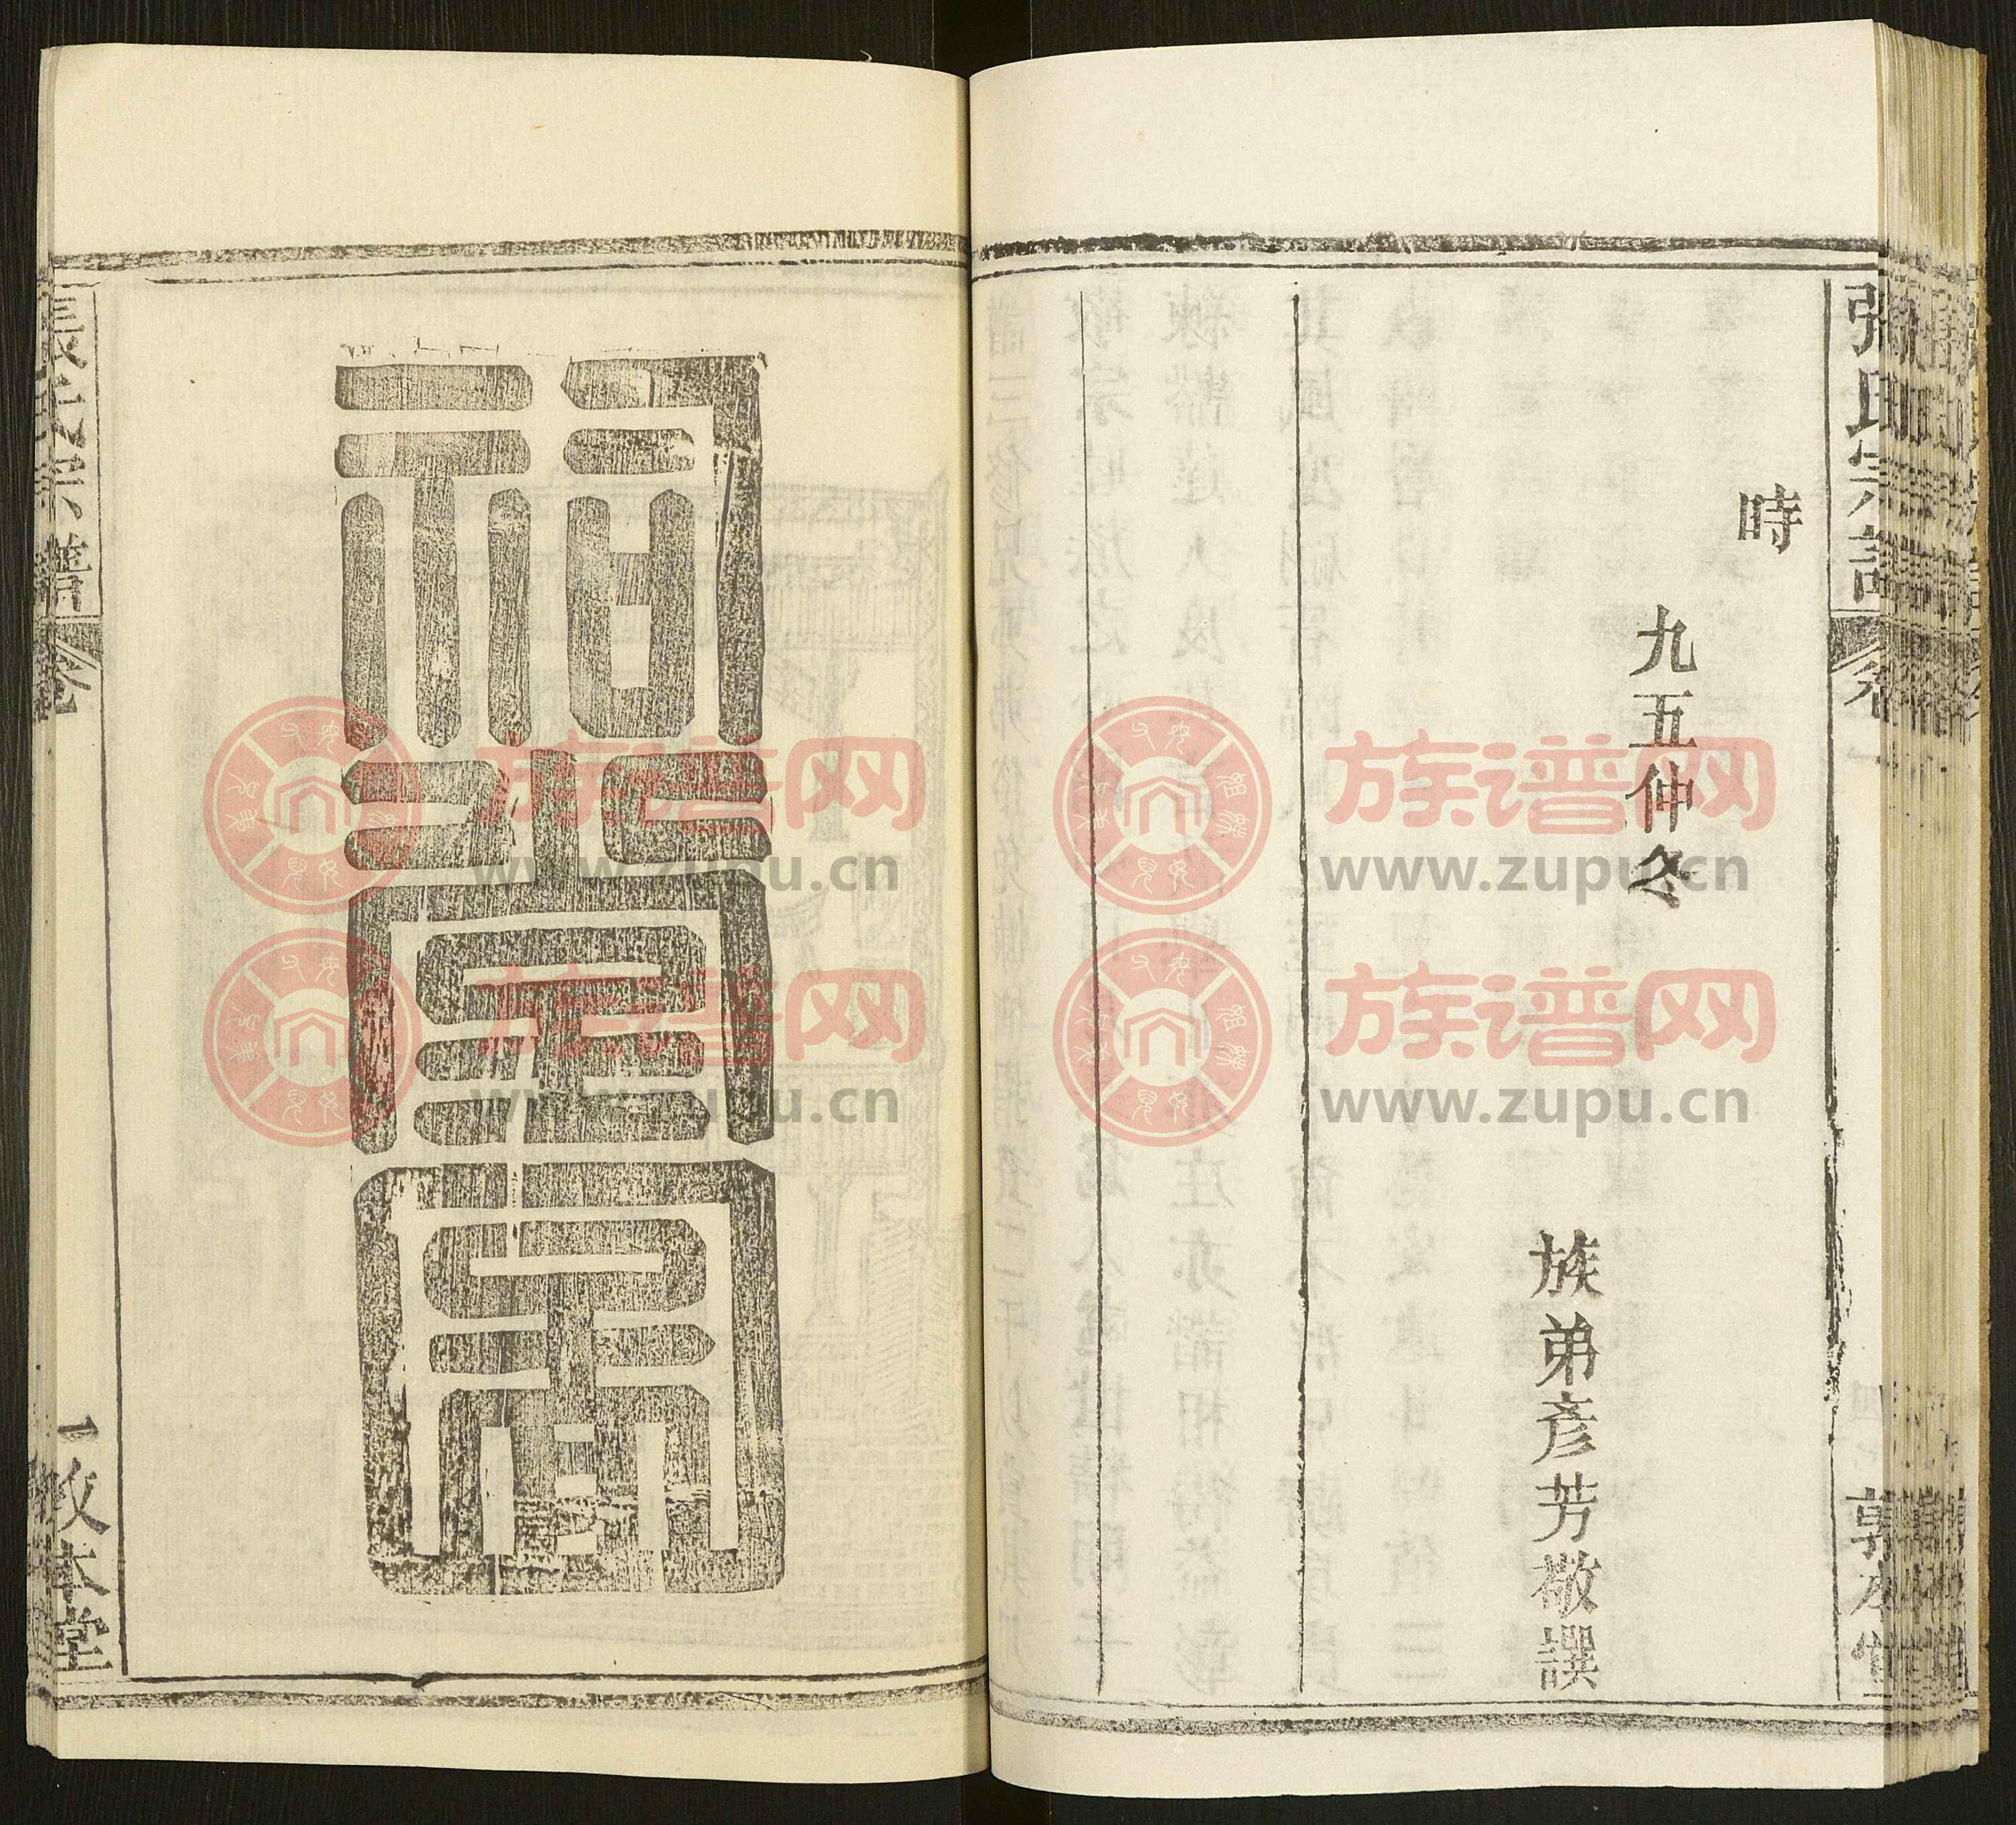 張氏宗譜 卷一 敦本堂
時
九五仲冬
族弟彥芳敬譔
祠堂圖
張氏宗譜 卷 一 敦本堂
族谱网
www.zupu.cn
族谱网
www.zupu.cn
族谱网
www.zupu.cn
族谱网
www.zupu.cn